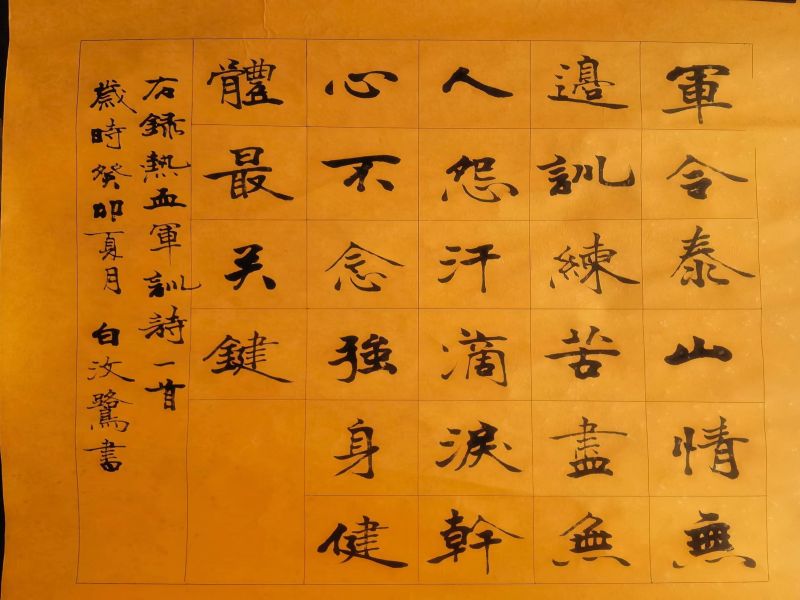 軍令泰山情無
邊訓練苦盡無
人怨汗滴淚幹
心不念強身健
體最关鍵
右録熱血軍訓詩一首
歲時癸卯夏月 白汝鷺書